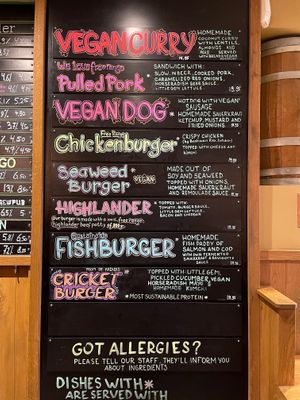 VEGAN CURRY
HOMEMADE
COCONUT CURRY
WITH LENTILS,
ALMONDS AND
SERVED
We use free range
Pulled Pork*
SANDWICH WITH:
SLOW, IN BEER, COOKED PORK,
CARAMELIZED RED ONIONS,
HORSERADISH BEER SAUCE,
LITTLE GEM LETTUCE
VEGAN DOG*
HOTDOG WITH VEGAN
SAUSAGE
* HOMEMADE SAUERKRAUT
KETCHUP, MUSTARD AND
FRIED ONIONS.
Free Range
Chickenburger
CRISPY CHICKEN
Seaweed
Burger
* VEGAN
MADE OUT OF
SOY AND SEAWEED
TOPPED WITH ONIONS,
HOMEMADE SAUERKRAUT
AND REMOULADE SAUCE
HIGHLANDER
Our burger is made with a
highlander beef patty
TOPPED WITH:
TOMATO, BURGER SAUCE,
LITTLE GEM LETTUCE,
BACON AND CHEDDAR
Sustainable
FISHBURGER*
HOMEMADE
FISH PADDY OF
SALMON AND COD
WITH OUR FERMENTED
SAUERKRAUT & RAVIGOTTE
SAUCE
CRICKET
BURGER*
TOPPED WITH LITTLE GEM,
PICKLED CUCUMBER, VEGAN
HORSERADISH MAYO &
HOMEMADE KIMCHI
* MOST SUSTAINABLE PROTEIN *
GOT ALLERGIES?
PLEASE TELL OUR STAFF, THEY'LL INFORM YOU
ABOUT INGREDIENTS
DISHES WITH *
ARE SERVED WITH